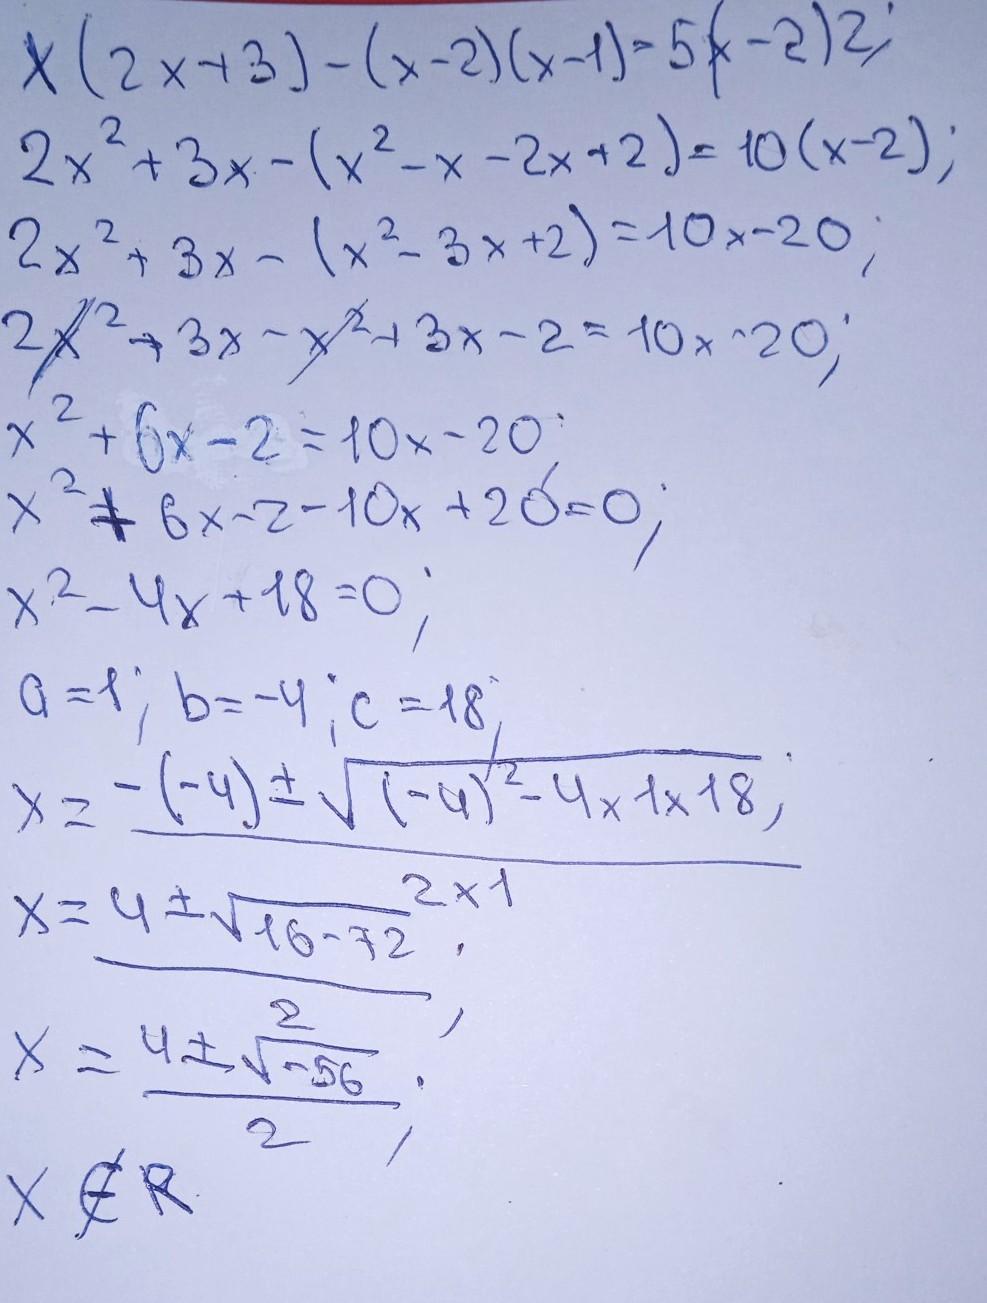 x(2x+3)-(x-2)(x-1)=5(x-2)2;
2x²+3x-(x²-x-2x+2)=10(x-2);
2x²+3x-(x²-3x+2)=10x-20;
2x²+3x-x²+3x-2=10x-20;
x²+6x-2=10x-20;
x²+6x-2-10x+20=0;
x²-4x+18=0;
a=1; b=-4; c=18;
x=-(-4)±√(-4)²-4x1x18;
2x1
x=4±√16-72;
2
x=4±√-56;
2
x∉R